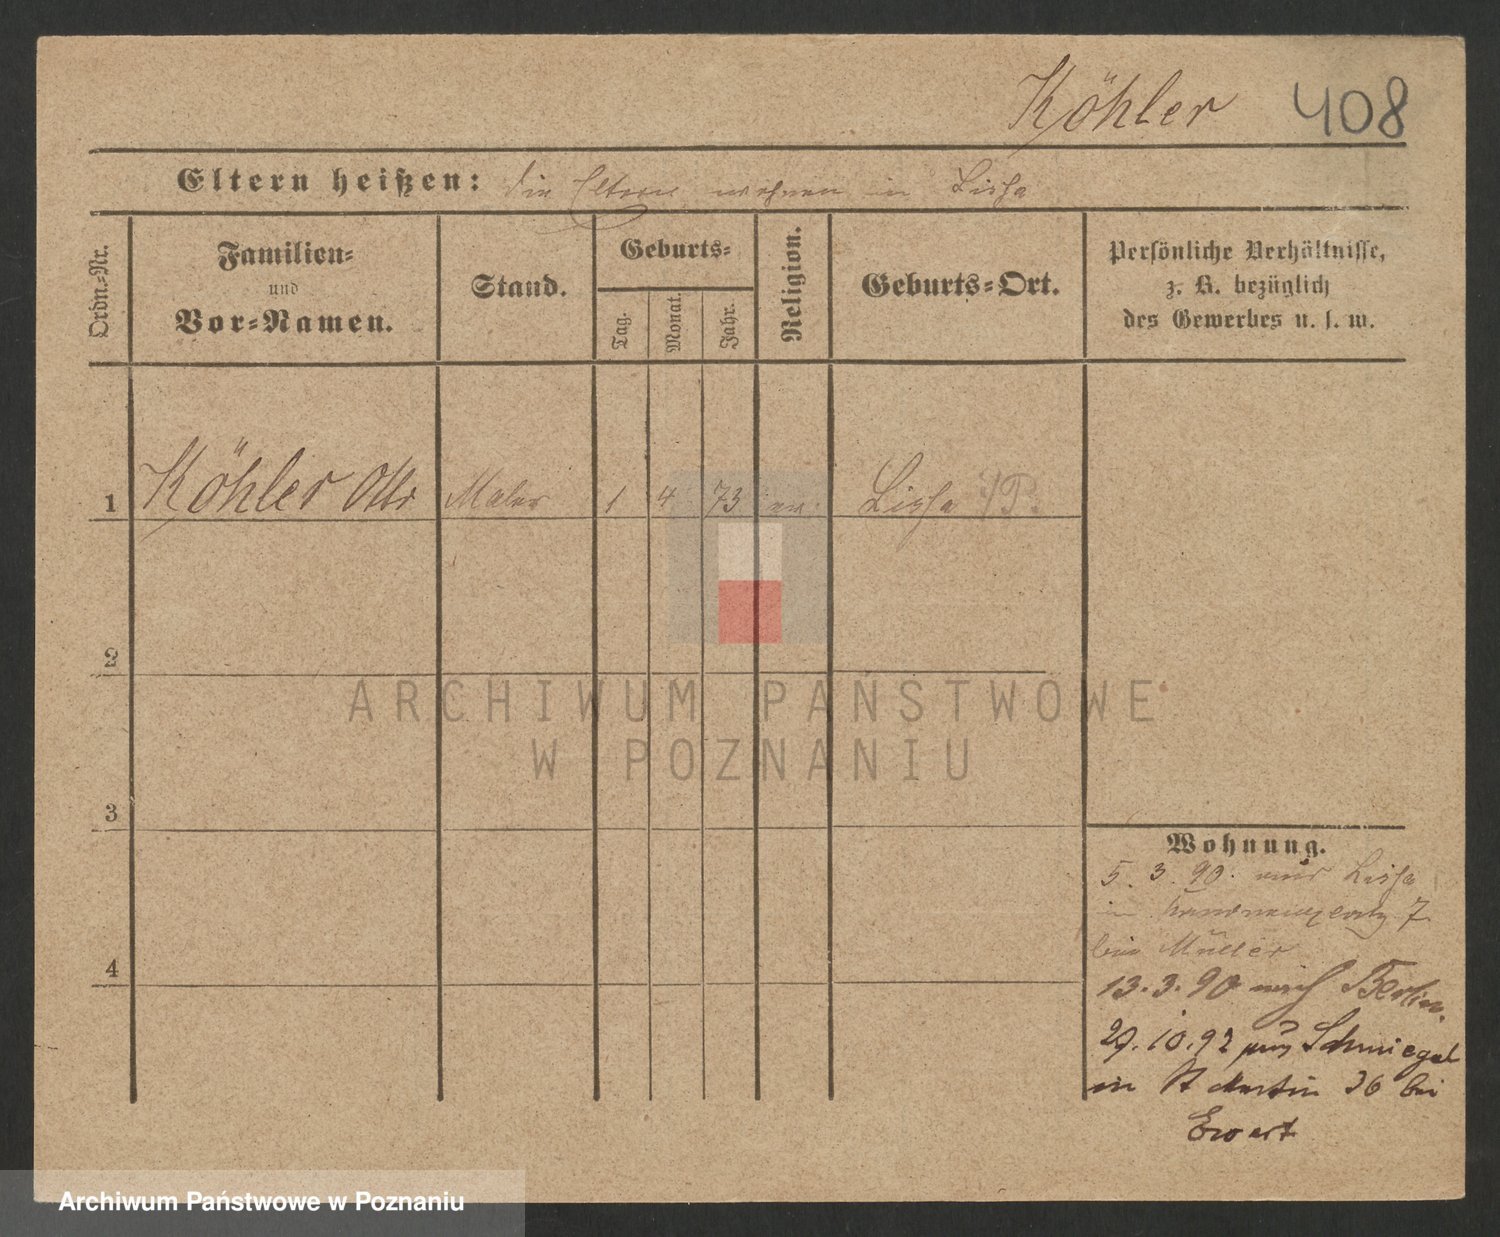 Köhler 408
Eltern heißen: die Eltern wohnen in Lissa
Ordn.-Nr.
Familien-
und
Vor-Namen.
Stand.
Geburts-
Tag.
Monat.
Jahr.
Religion.
Geburts-Ort.
Persönliche Verhältnisse,
z. B. bezüglich
des Gewerbes u. s. w.
1 Köhler Otto Maler 1 4 73 ev. Lissa i/P.
2
3
4
ARCHIWUM PAŃSTWOWE
W POZNANIU
Wohnung.
5. 3. 90. aus Lissa
in 7
bei Müller
13.3.90 nach Berlin.
29.10.92 aus Schmiegel
in St Martin 26 bei
Ewert
Archiwum Państwowe w Poznaniu